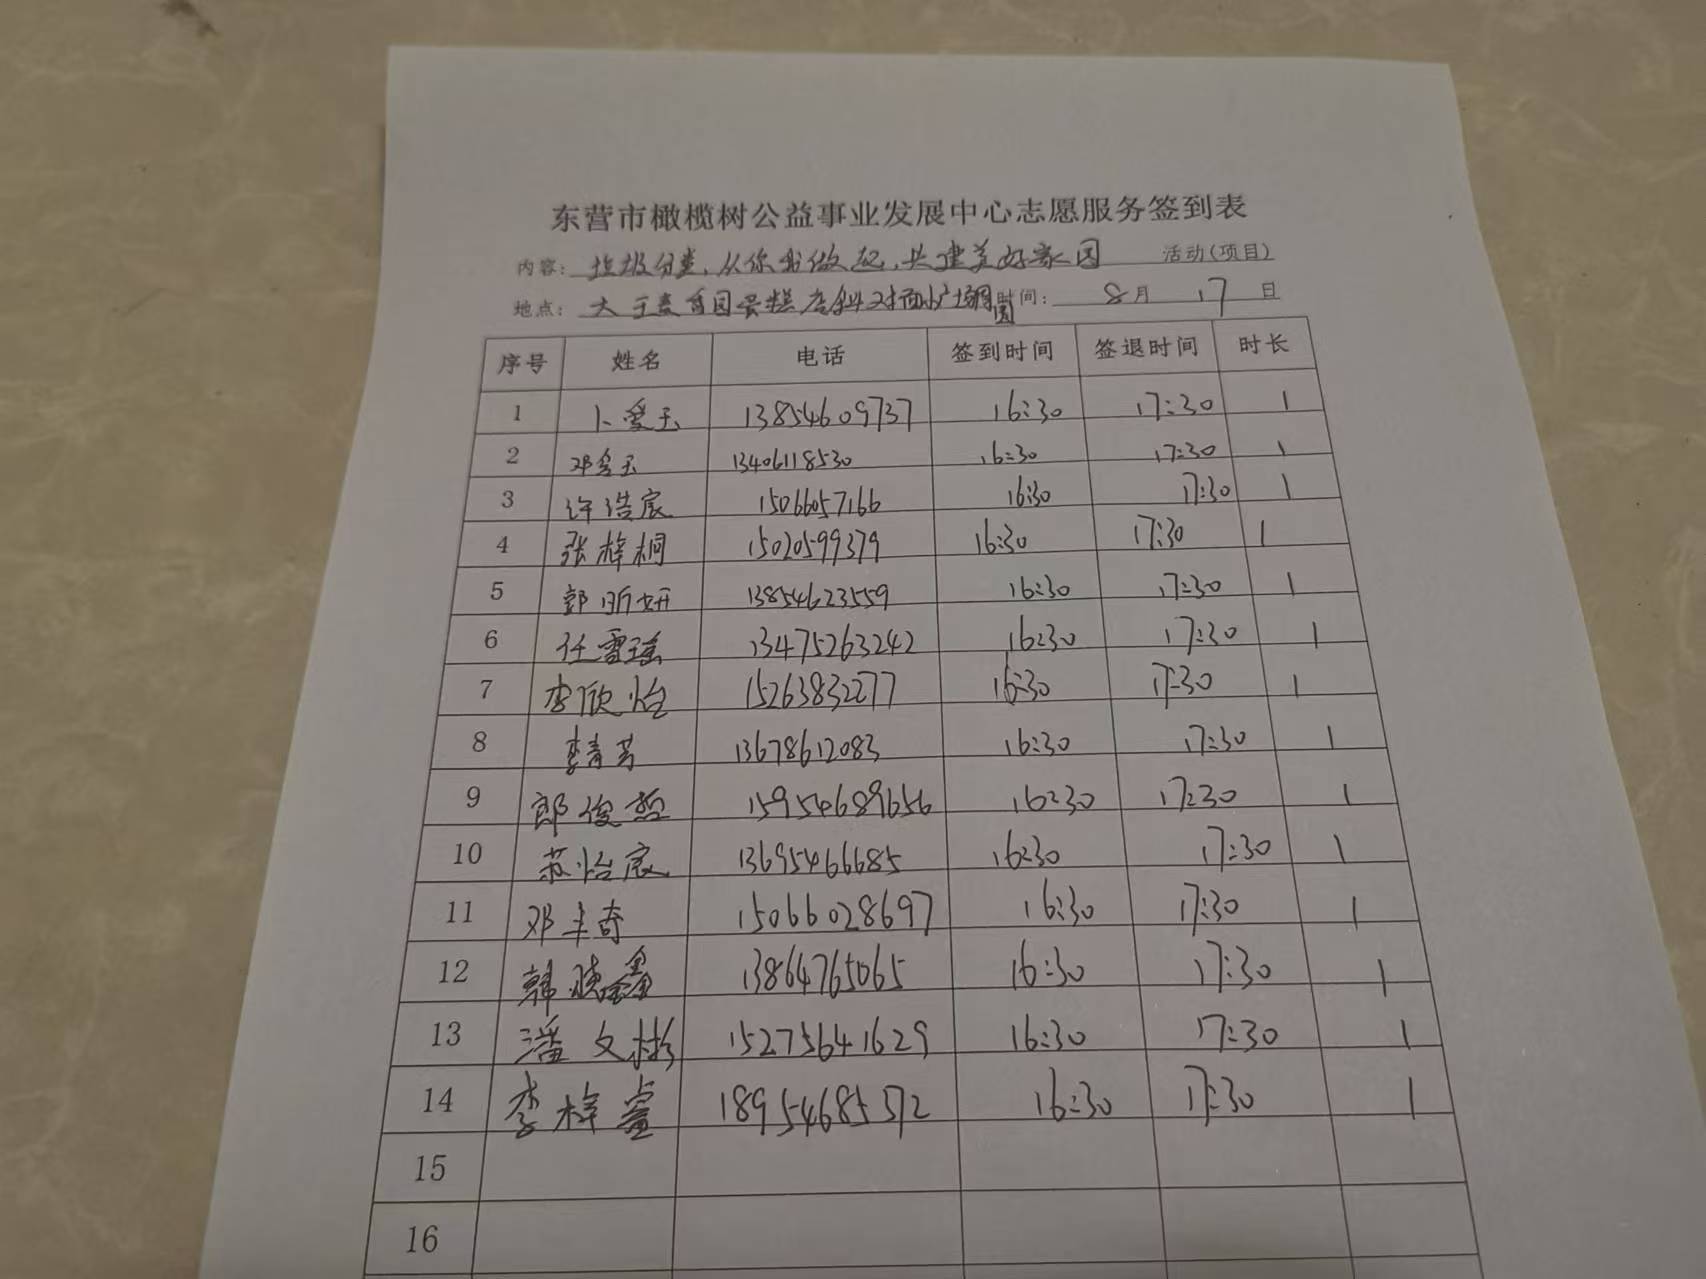 东营市橄榄树公益事业发展中心志愿服务签到表
内容: 垃圾分类,从你我做起,共建美好家园 活动(项目)
地点: 大王麦香园蛋糕店斜对面小广场 时间: 8月 17 日
序号 姓名 电话 签到时间 签退时间 时长
1 卜爱玉 13854609737 16:30 17:30 1
2 邓金玉 13406118530 16:30 17:30 1
3 许浩宸 15066057166 16:30 17:30 1
4 张梓桐 15020599379 16:30 17:30 1
5 郭昕妍 13854623559 16:30 17:30 1
6 任雪瑶 13475263242 16:30 17:30 1
7 李欣怡 15263832277 16:30 17:30 1
8 李青芳 13678612083 16:30 17:30 1
9 郎俊哲 15954689656 16:30 17:30 1
10 苏怡宸 13695466685 16:30 17:30 1
11 邓丰奇 15066028697 16:30 17:30 1
12 韩晓鑫 13864765065 16:30 17:30 1
13 潘文彬 15275641629 16:30 17:30 1
14 李梓睿 18954685572 16:30 17:30 1
15
16